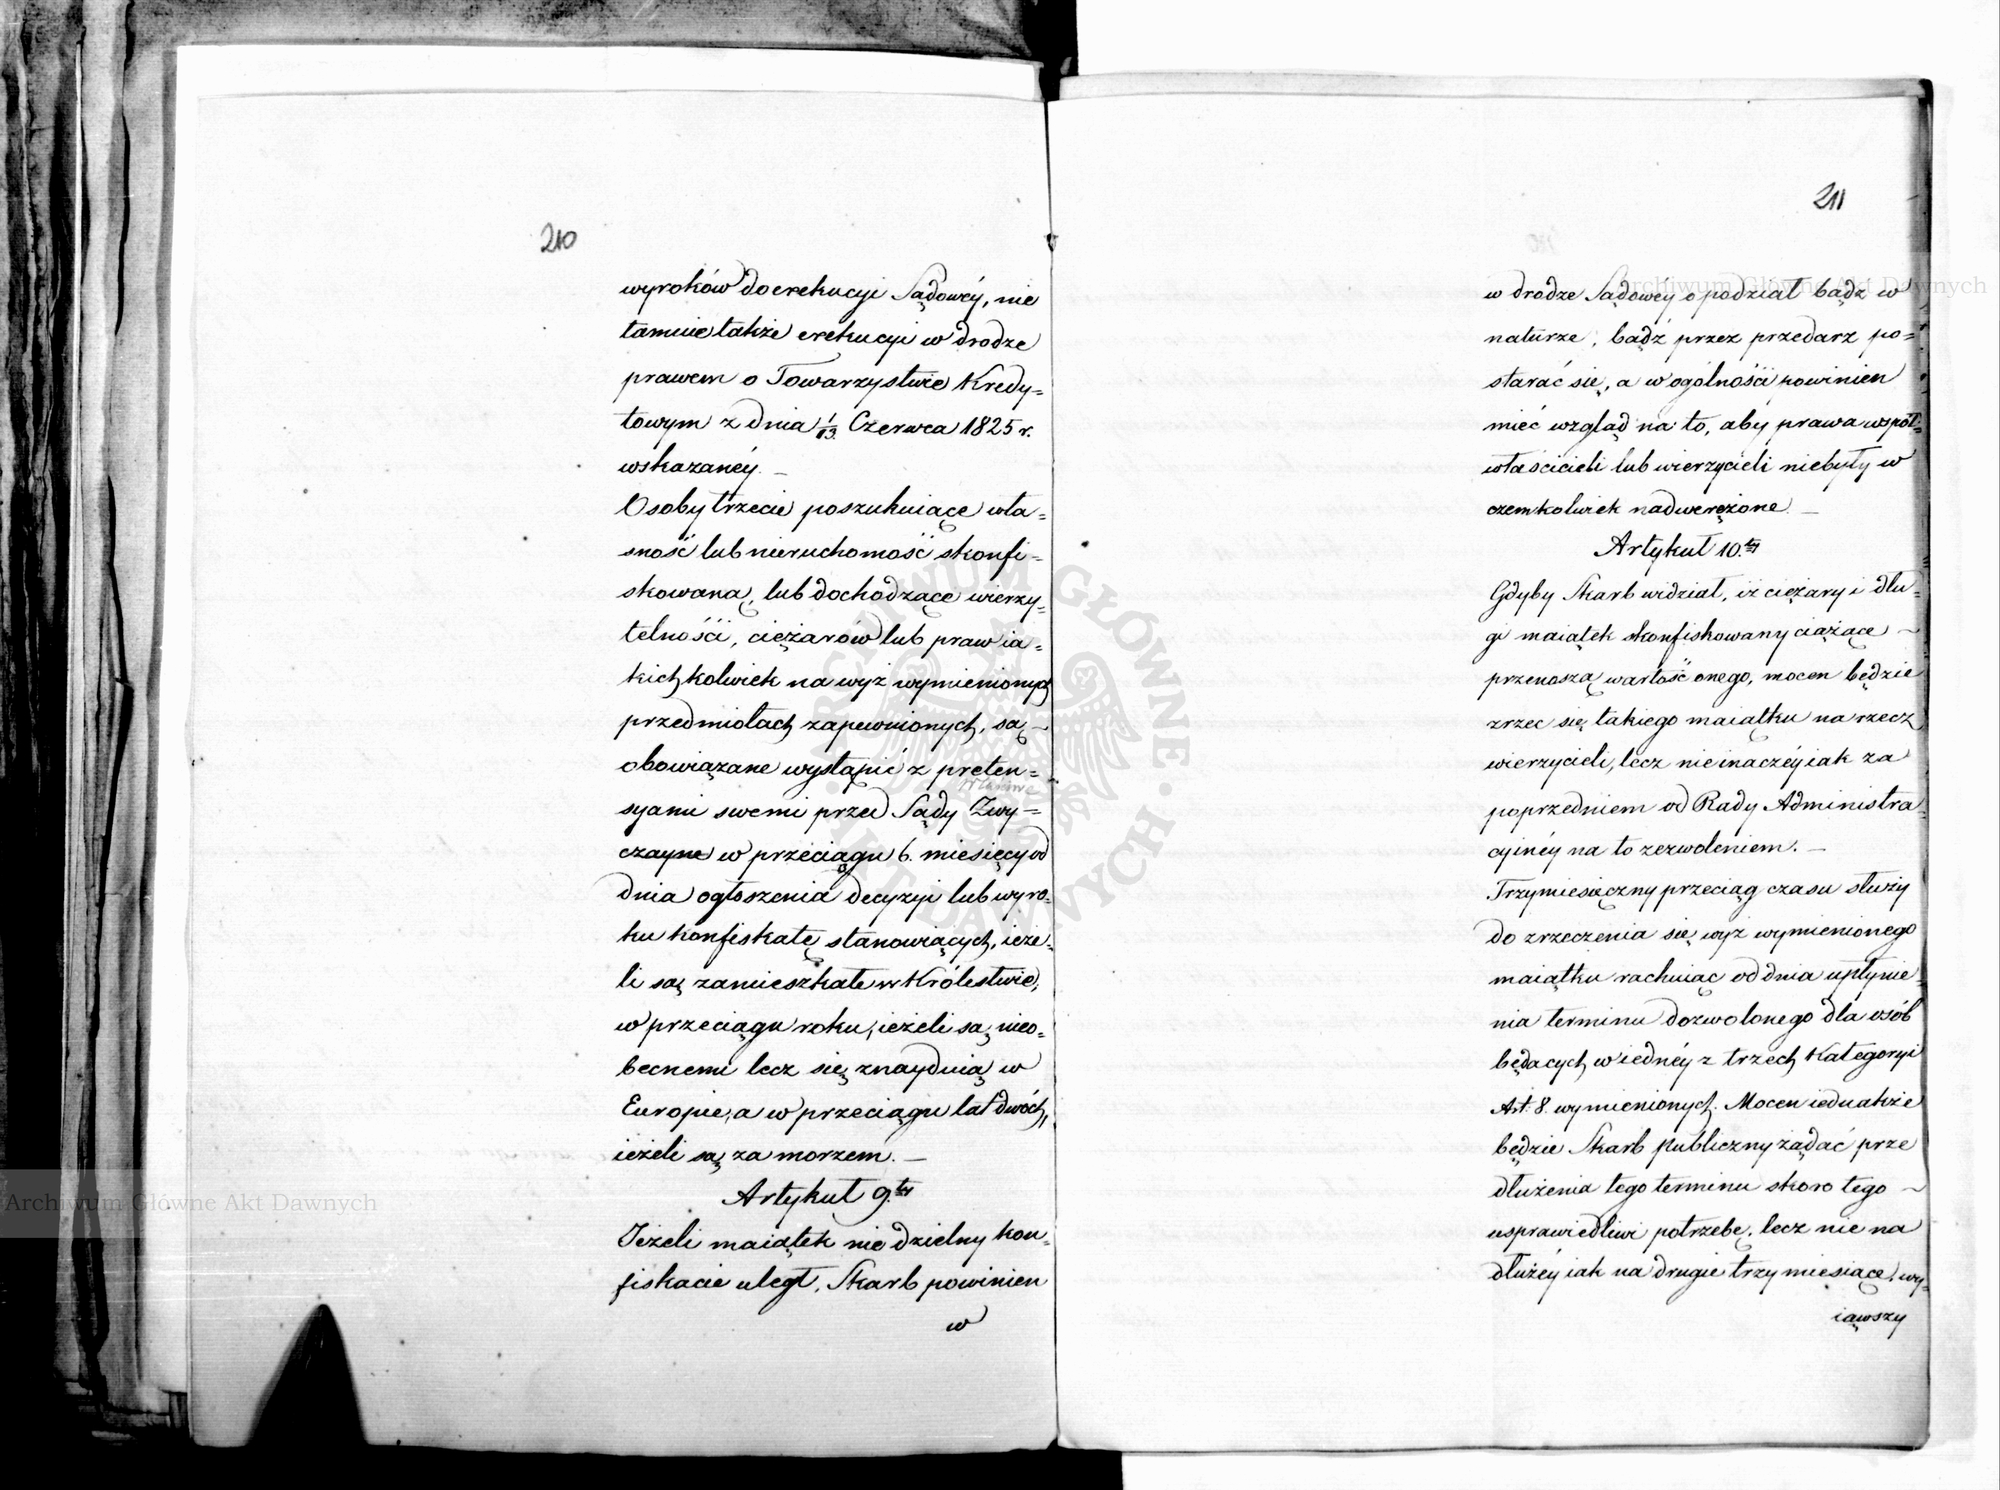 210
wyroków do exekucyi Sądowéy, nie
tamuie także exekucyi w drodze
prawem o Towarzystwie Kredy=
towym z dnia 1/13. Czerwca 1825 r.
wskazanéy. —
Osoby trzecie poszukuiące wła=
sność lub nieruchomość skonfi=
skowaną, lub dochodzące wierzy=
telnośći, ciężarów lub praw ia=
kichkolwiek na wyż wymienionych
przedmiotach zapewnionych, są —
obowiązane wystąpić z preten=
syami swemi przed Sądy Zwy=
czayne w przeciągu 6. miesięcy od
dnia ogłoszenia decyzyi lub wyro=
ku konfiskatę stanowiących, ieże=
li są zamieszkałe w Królestwie,
w przeciągu roku, ieżeli są nieo=
becnemi lecz się znayduią w
Europie, a w przeciągu lat dwóch,
ieżeli są za morzem. —
Artykuł 9.ty
Ieżeli maiątek nie dzielny kon=
fiskacie uległ, Skarb powinien
w
211
w drodze Sądowéy o podział bądź w
naturze, bądź przez przedarz po=
starać się, a w ogólnośći powinien
mieć wzgląd na to, aby prawa wspoł=
właścicieli lub wierzycieli niebyły w
czemkolwiek nadwerężone. —
Artykuł 10.ty
Gdyby Skarb widział, iż ciężary i dłu=
gi maiątek skonfiskowany ciążące —
przenoszą wartość onego, mocen będzie
zrzec się takiego maiątku na rzecz
wierzycieli, lecz nie inaczéy iak za
poprzedniem od Rady Administra=
cyinéy na to zezwoleniem. —
Trzymiesięczny przeciąg czasu służy
do zrzeczenia się wyż wymienionego
maiątku rachuiąc od dnia upłynie=
nia terminu dozwolonego dla osób
będących w iednéy z trzech Kategoryi
Art: 8. wymienionych. Mocen iednakże
będzie Skarb Publiczny żądać prze
dłużenia tego terminu skoro tego —
usprawiedliwi potrzebę, lecz nie na
dłużéy iak na drugie trzy miesiące, wy=
iąwszy
Archiwum Główne Akt Dawnych
Archiwum Główne Akt Dawnych
ARCHIWUM GŁÓWNE · AKT DAWNYCH ·